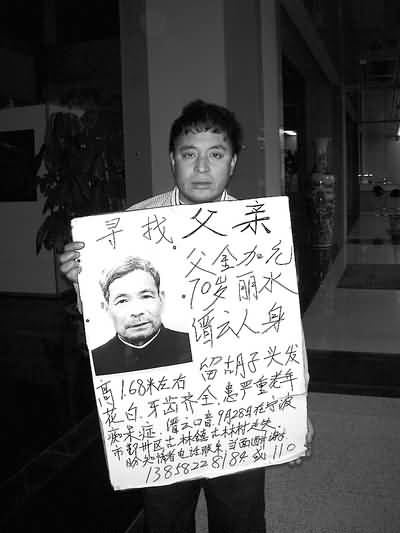 寻找父亲
父金加
70岁丽水
缙云人身
高1.68米左右留胡子头发
花白.牙齿齐全患严重老年
痴呆症.缙云口音.9月28日在宁波
市鄞州区古林镇古林村走失.
盼知情者电话联系当面酬谢
13858228184或110